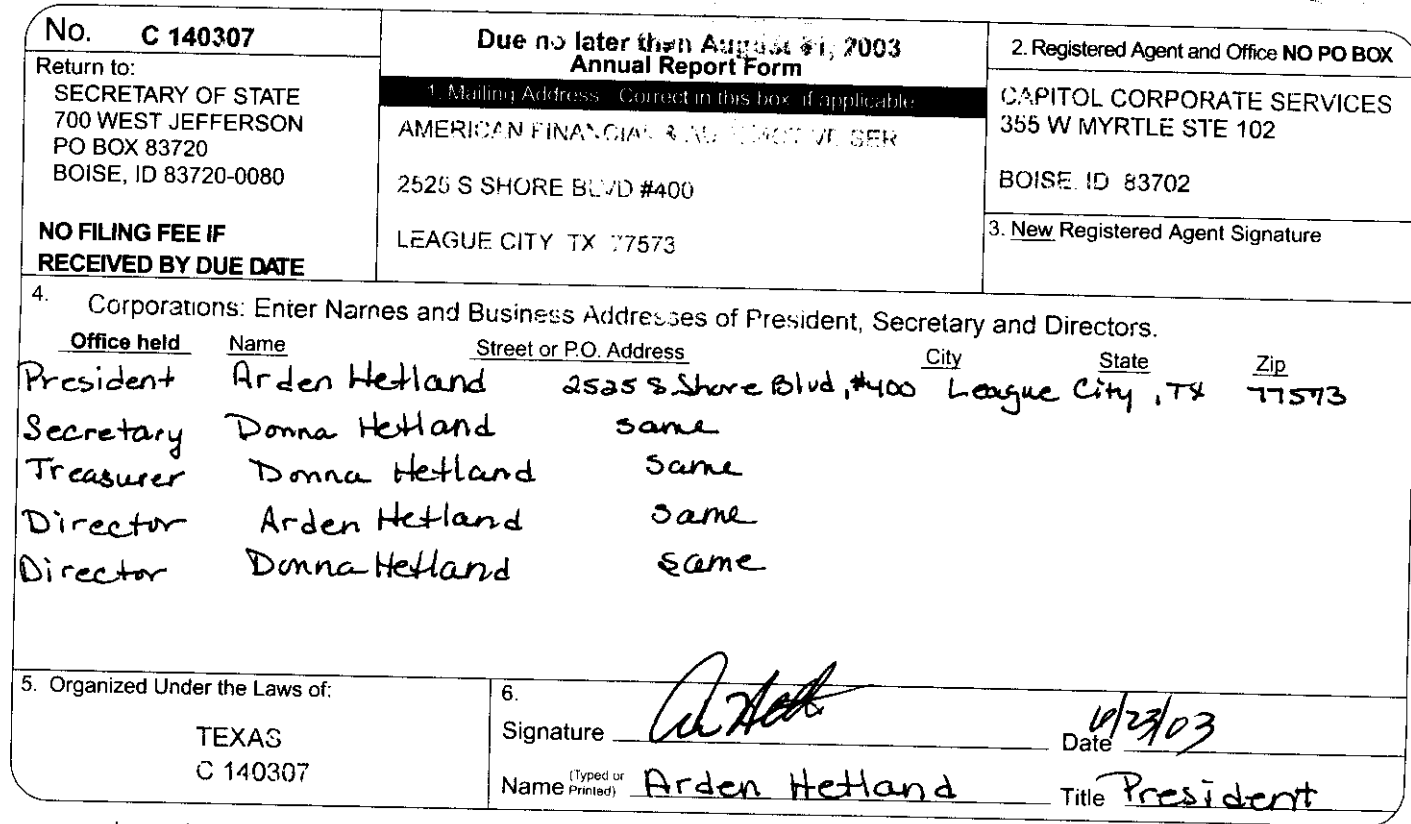 No. C 140307
Return to:
SECRETARY OF STATE
700 WEST JEFFERSON
PO BOX 83720
BOISE, ID 83720-0080
NO FILING FEE IF
RECEIVED BY DUE DATE
Due no later than August 31, 2003
Annual Report Form
1. Mailing Address Correct in this box if applicable
AMERICAN FINANCIAL & SER
2525 S SHORE BLVD #400
LEAGUE CITY TX 77573
2. Registered Agent and Office NO PO BOX
CAPITOL CORPORATE SERVICES
355 W MYRTLE STE 102
BOISE, ID 83702
3. New Registered Agent Signature
4. Corporations: Enter Names and Business Addresses of President, Secretary and Directors.
Office held Name Street or P.O. Address City State Zip
President Arden Hetland 2525 S Shore Blvd, #400 League City, TX 77573
Secretary Donna Hetland same
Treasurer Donna Hetland same
Director Arden Hetland same
Director Donna Hetland same
5. Organized Under the Laws of:
TEXAS
C 140307
6.
Signature Date 6/23/03
Name (Typed or Printed) Arden Hetland Title President